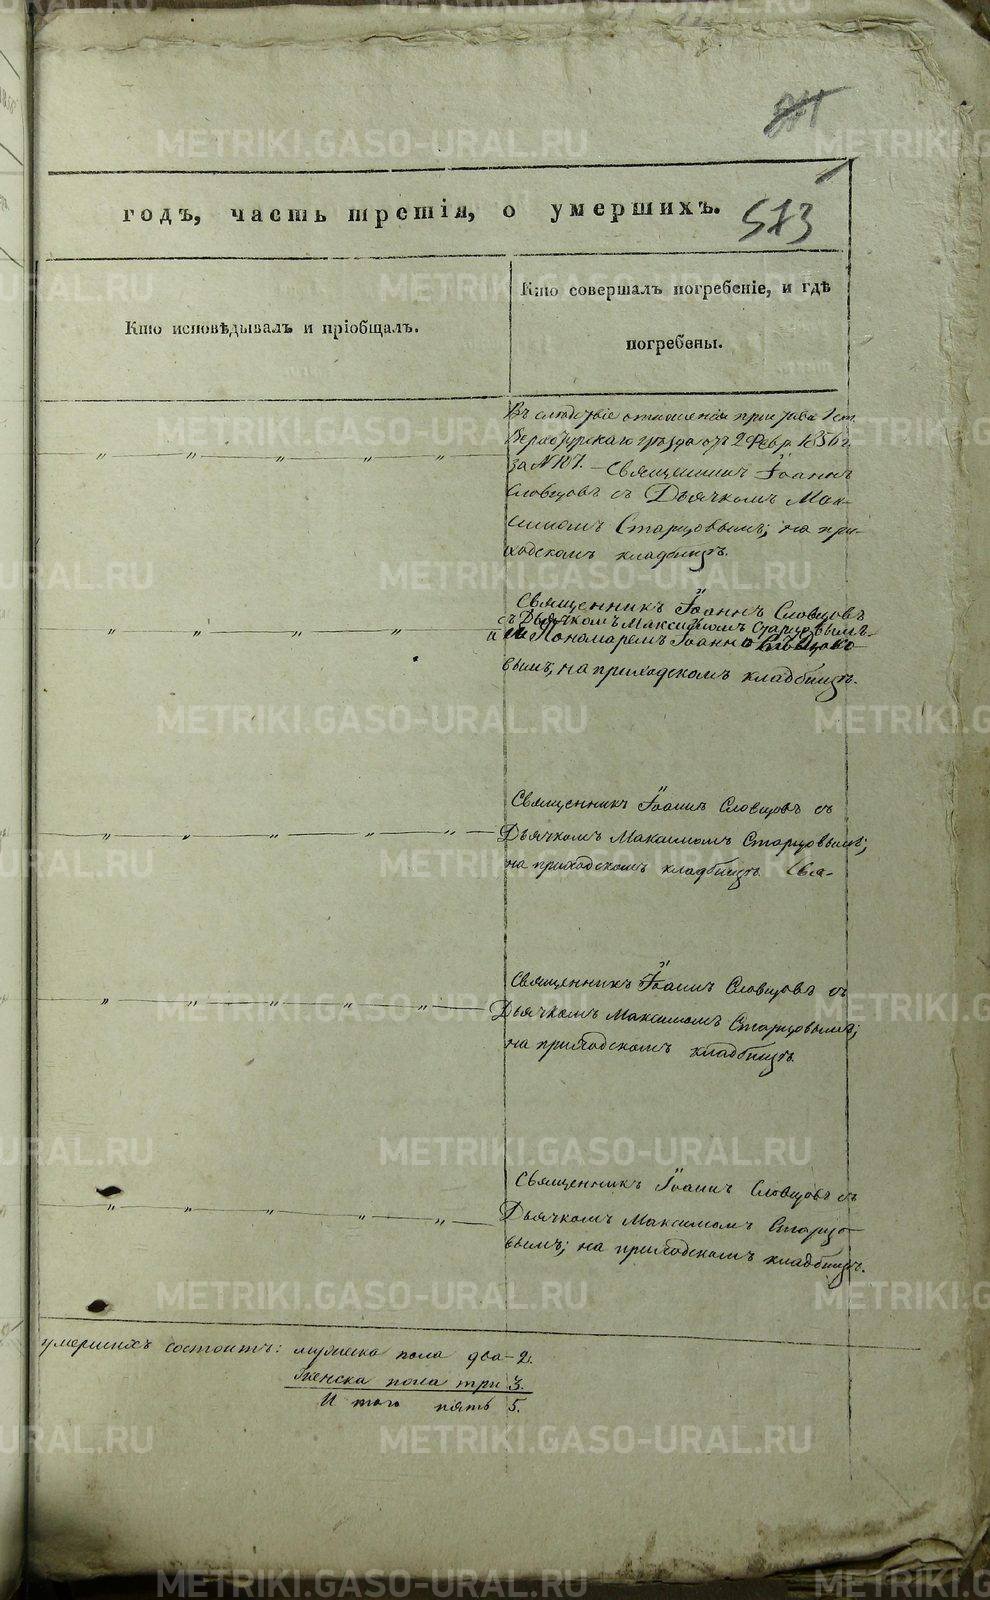 573
годъ, часть третія, о умершихъ.
Кто исповѣдывалъ и пріобщалъ.
Кто совершалъ погребеніе, и гдѣ
погребены.
Въ слѣдствіе отношенія пристава 1 ст.
Верхотурскаго уѣзда отъ 2 Февр. 1856 г.
за № 107. – Священникъ Іоаннъ
Словцовъ съ Дьячкомъ Мак-
симомъ Старцовымъ; на при-
ходскомъ кладбищѣ.
Священникъ Іоаннъ Словцовъ
съ Дьячкомъ Максимомъ Старцовымъ
и Пономаремъ Іоанномъ Словцо-
вымъ, на приходскомъ кладбищѣ.
Священникъ Іоаннъ Словцовъ съ
Дьячкомъ Максимомъ Старцовымъ;
на приходскомъ кладбищѣ. Свя-
Священникъ Іоаннъ Словцовъ съ
Дьячкомъ Максимомъ Старцовымъ;
на приходскомъ кладбищѣ.
Священникъ Іоаннъ Словцовъ съ
Дьячкомъ Максимомъ Старцо-
вымъ; на приходскомъ кладбищѣ.
умершихъ состоитъ: мужеска пола два – 2.
Женска пола три 3.
И того пять 5.
METRIKI.GASO-URAL.RU